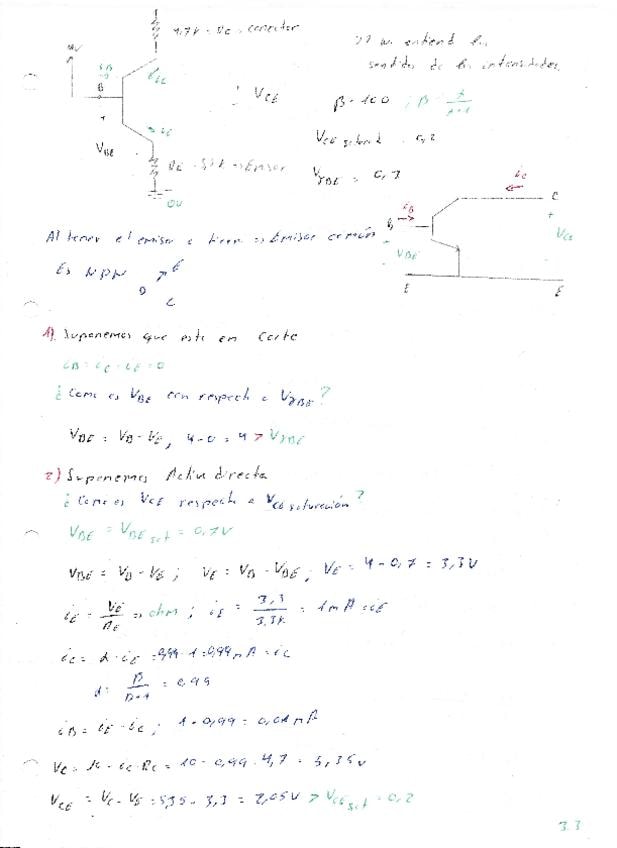 4,7K = Rc → conector
?? no entiend los
sentidos de las intensidades
4V
iB
B
iC
VCE
β = 100 ; β =
VCE saturad = 0,2
iE
+
VBE
RE = 3,3K → Emisor
VγBE = 0,7
0V
iC
C
iB
B
+
VCE
VBE
E
E
Al tener el emisor a tierra → Emisor común
Es NPN
E
B
C
1) Suponemos que está en corte
iB = iC = iE = 0
¿Como es VBE con respecto a VγBE?
VBE = VB - VE, 4-0 = 4 > VγBE
2) Suponemos Activa directa
¿Como es VCE respecto a VCE saturación?
VBE = VBE sat = 0,7V
VBE = VB - VE ; VE = VB - VBE ; VE = 4 - 0,7 = 3,3V
iE = VE/RE → ohm ; iE = 3,3/3,3K = 1mA = iE
iC = α · iE = 0,99 · 1 = 0,99mA = iC
α = β/β+1 = 0,99
iB = iE - iC ; 1 - 0,99 = 0,01mA
VC = 10 - iC · RC = 10 - 0,99 · 4,7 = 5,35V
VCE = VC - VE = 5,35 - 3,3 = 2,05V > VCE sat = 0,2
3.3